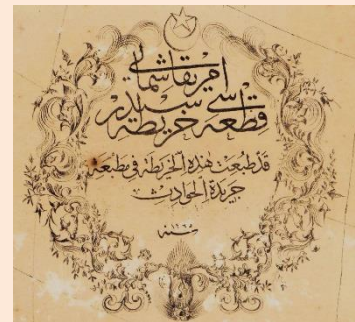 امريقا شمالى
قطعه سى خريطه سيدر
قد طبعت هذه الخريطة فى مطبعه
جريدة الحوادث
سنه